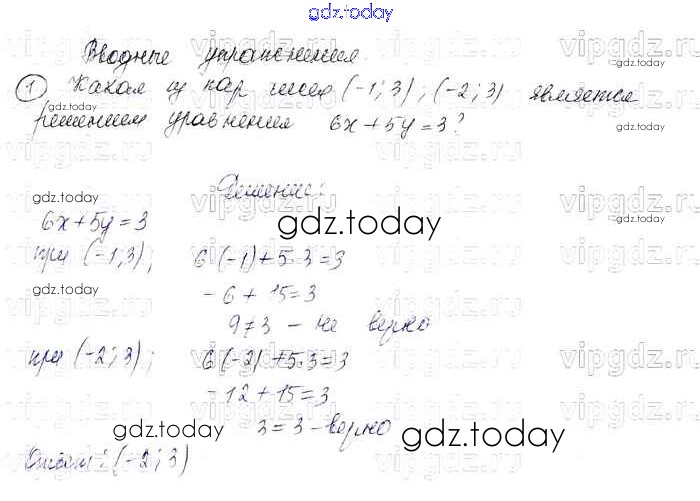 gdz.today
Вводные упражнения.
1 Какая из пар чисел (-1; 3), (-2; 3) является
gdz.today gdz.today
решением уравнения 6x + 5y = 3?
Решение:
gdz.today
gdz.today
6x + 5y = 3
при (-1; 3); 6(-1) + 5·3 = 3
gdz.today
-6 + 15 = 3
9 ≠ 3 - не верно
при (-2; 3); 6(-2) + 5·3 = 3
-12 + 15 = 3
3 = 3 - верно
gdz.today gdz.today
Ответ: (-2; 3)
vipgdz.ru